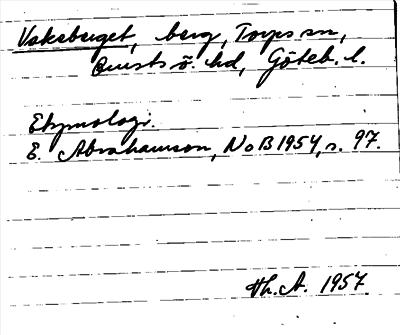 Vaksberget, berg, Torps sn,
Orusts ö. hd, Göteb. l.
Etymologi.
E. Abrahamson, NoB 1954, s. 97.
Hh. A. 1957